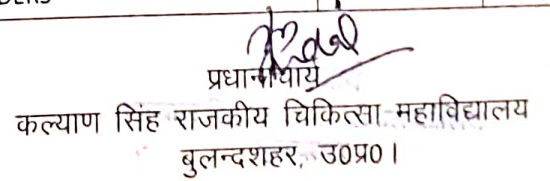 प्रधानाचार्य
कल्याण सिंह राजकीय चिकित्सा महाविद्यालय
बुलन्दशहर, उ०प्र०।